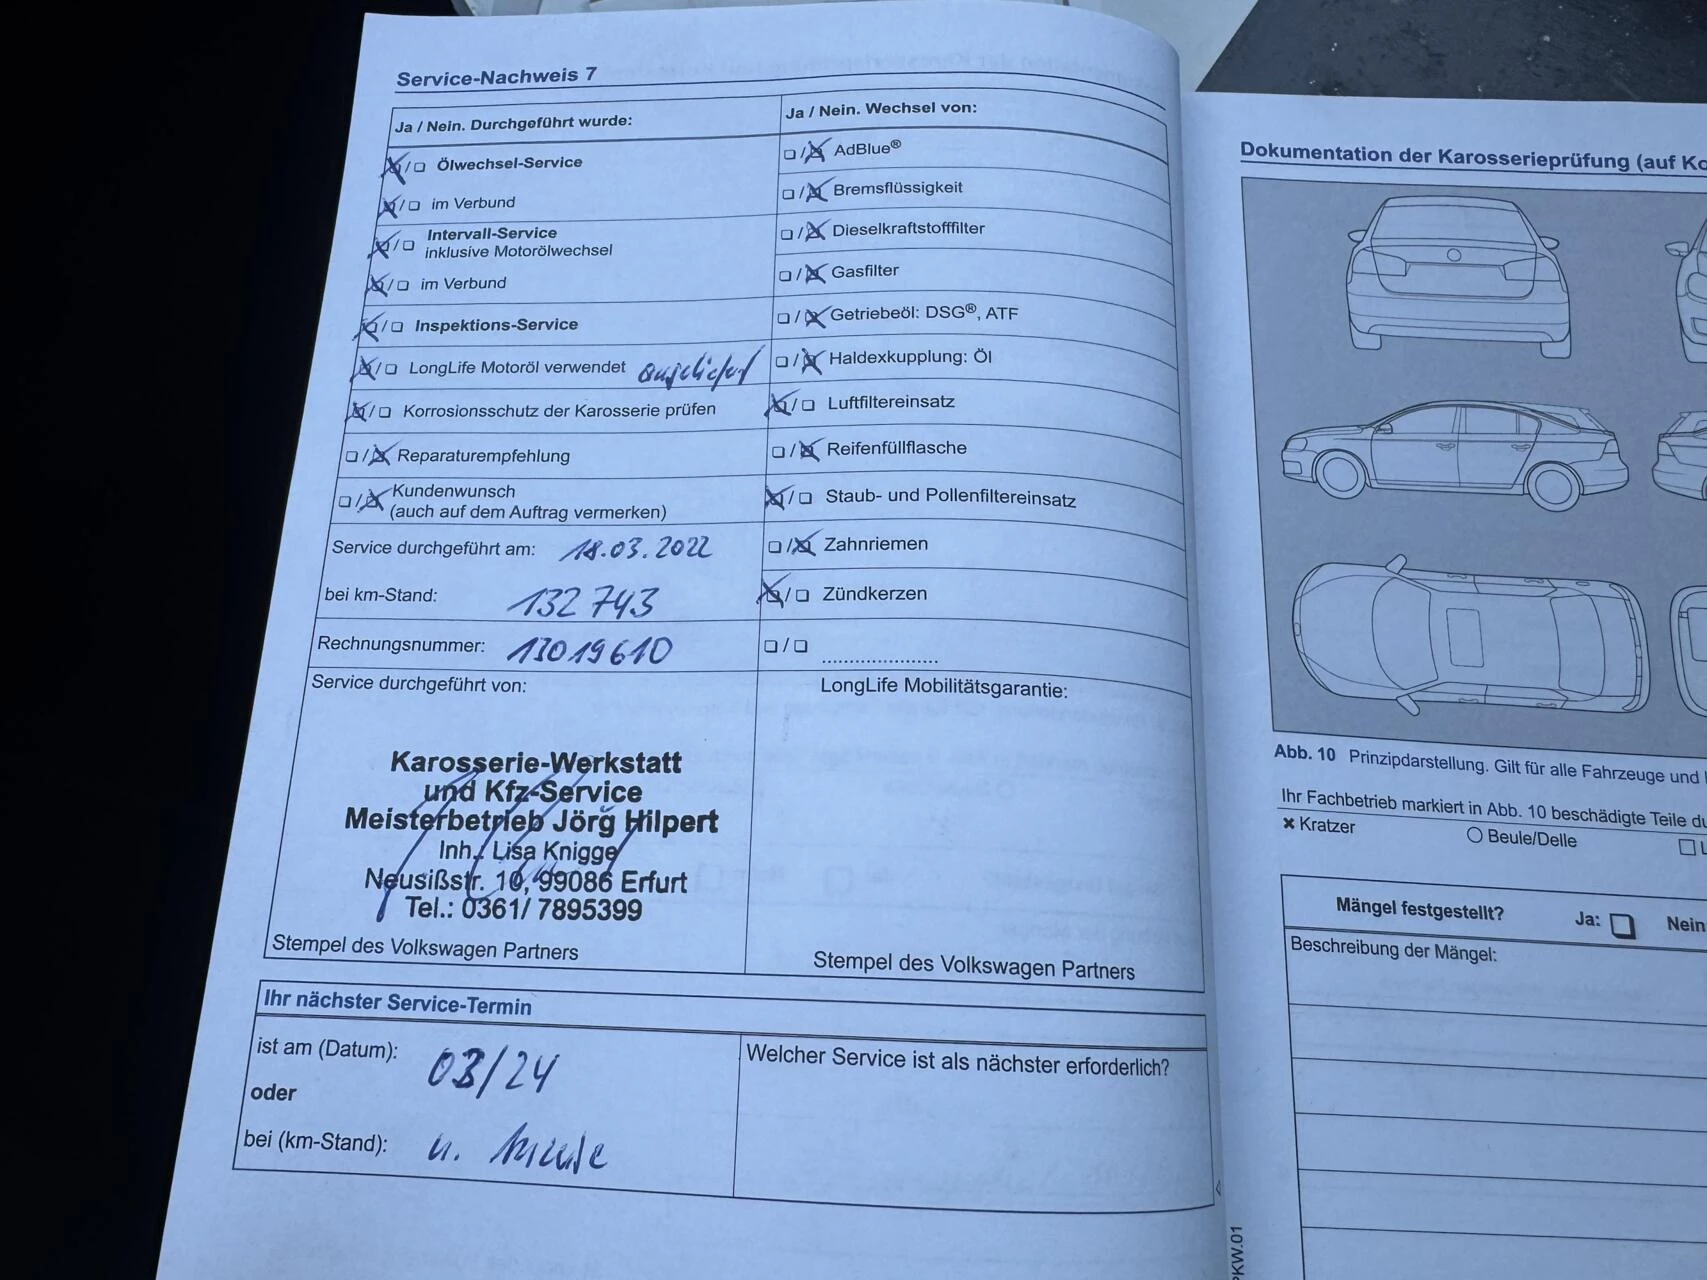 Service-Nachweis 7
Ja / Nein. Durchgeführt wurde:
☒/☐ Ölwechsel-Service
☒/☐ im Verbund
☒/☐ Intervall-Service
inklusive Motorölwechsel
☒/☐ im Verbund
☒/☐ Inspektions-Service
☒/☐ LongLife Motoröl verwendet angeliefert
☒/☐ Korrosionsschutz der Karosserie prüfen
☐/☒ Reparaturempfehlung
☐/☒ Kundenwunsch
(auch auf dem Auftrag vermerken)
Service durchgeführt am: 18.03.2022
bei km-Stand: 132 743
Rechnungsnummer: 13019610
Service durchgeführt von:
Karosserie-Werkstatt
und Kfz-Service
Meisterbetrieb Jörg Hilpert
Inh. Lisa Knigge
Neusißstr. 10, 99086 Erfurt
Tel.: 0361/ 7895399
Stempel des Volkswagen Partners
Ja / Nein. Wechsel von:
☐/☒ AdBlue®
☐/☒ Bremsflüssigkeit
☐/☒ Dieselkraftstofffilter
☐/☒ Gasfilter
☐/☒ Getriebeöl: DSG®, ATF
☐/☒ Haldexkupplung: Öl
☒/☐ Luftfiltereinsatz
☐/☒ Reifenfüllflasche
☒/☐ Staub- und Pollenfiltereinsatz
☐/☒ Zahnriemen
☒/☐ Zündkerzen
☐/☐ .....................
LongLife Mobilitätsgarantie:
Stempel des Volkswagen Partners
Ihr nächster Service-Termin
ist am (Datum): 03/24
oder
bei (km-Stand): n. Anzeige
Welcher Service ist als nächster erforderlich?
Dokumentation der Karosserieprüfung (auf Ko
Abb. 10 Prinzipdarstellung. Gilt für alle Fahrzeuge und
Ihr Fachbetrieb markiert in Abb. 10 beschädigte Teile du
✖ Kratzer ○ Beule/Delle ☐
Mängel festgestellt? Ja: ☐ Nein
Beschreibung der Mängel:
PKW.01